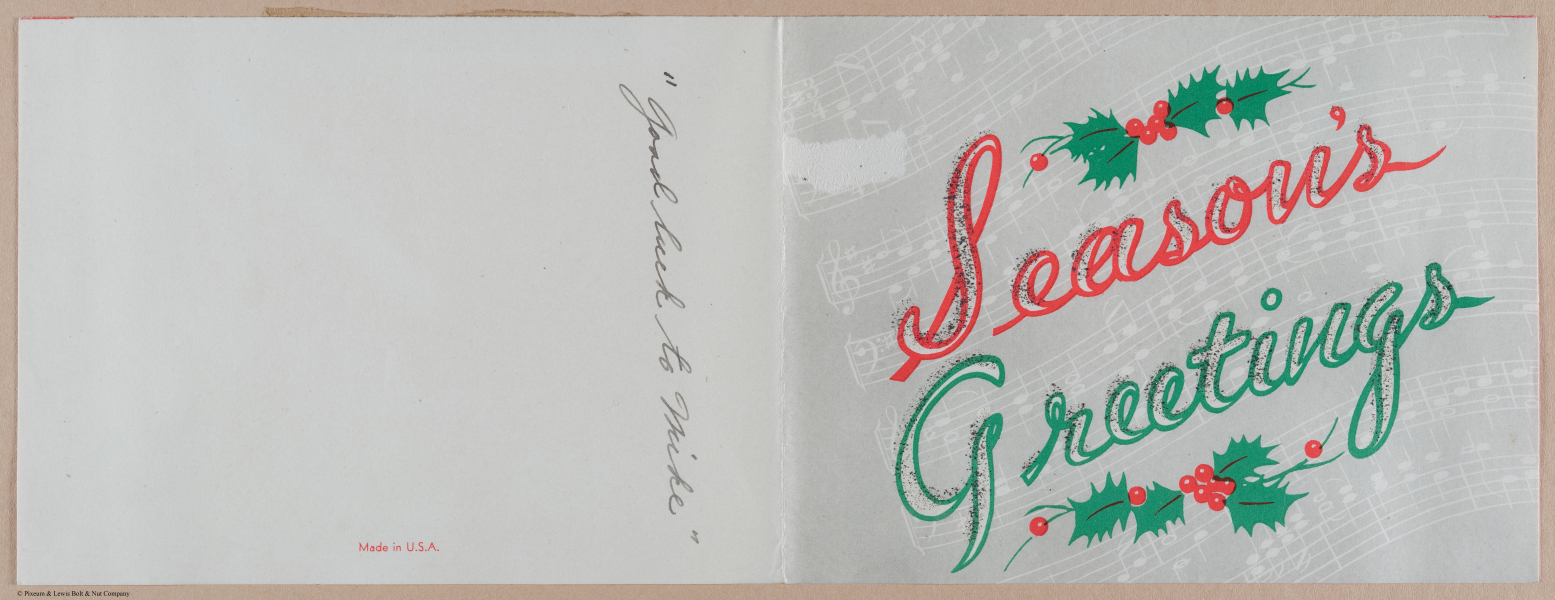 "Good luck to Mike"
Made in U.S.A.
Season's
Greetings
© Pixeum & Lewis Bolt & Nut Company